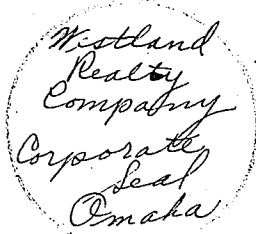 Westland
Realty
Company
Corporate
Seal
Omaha